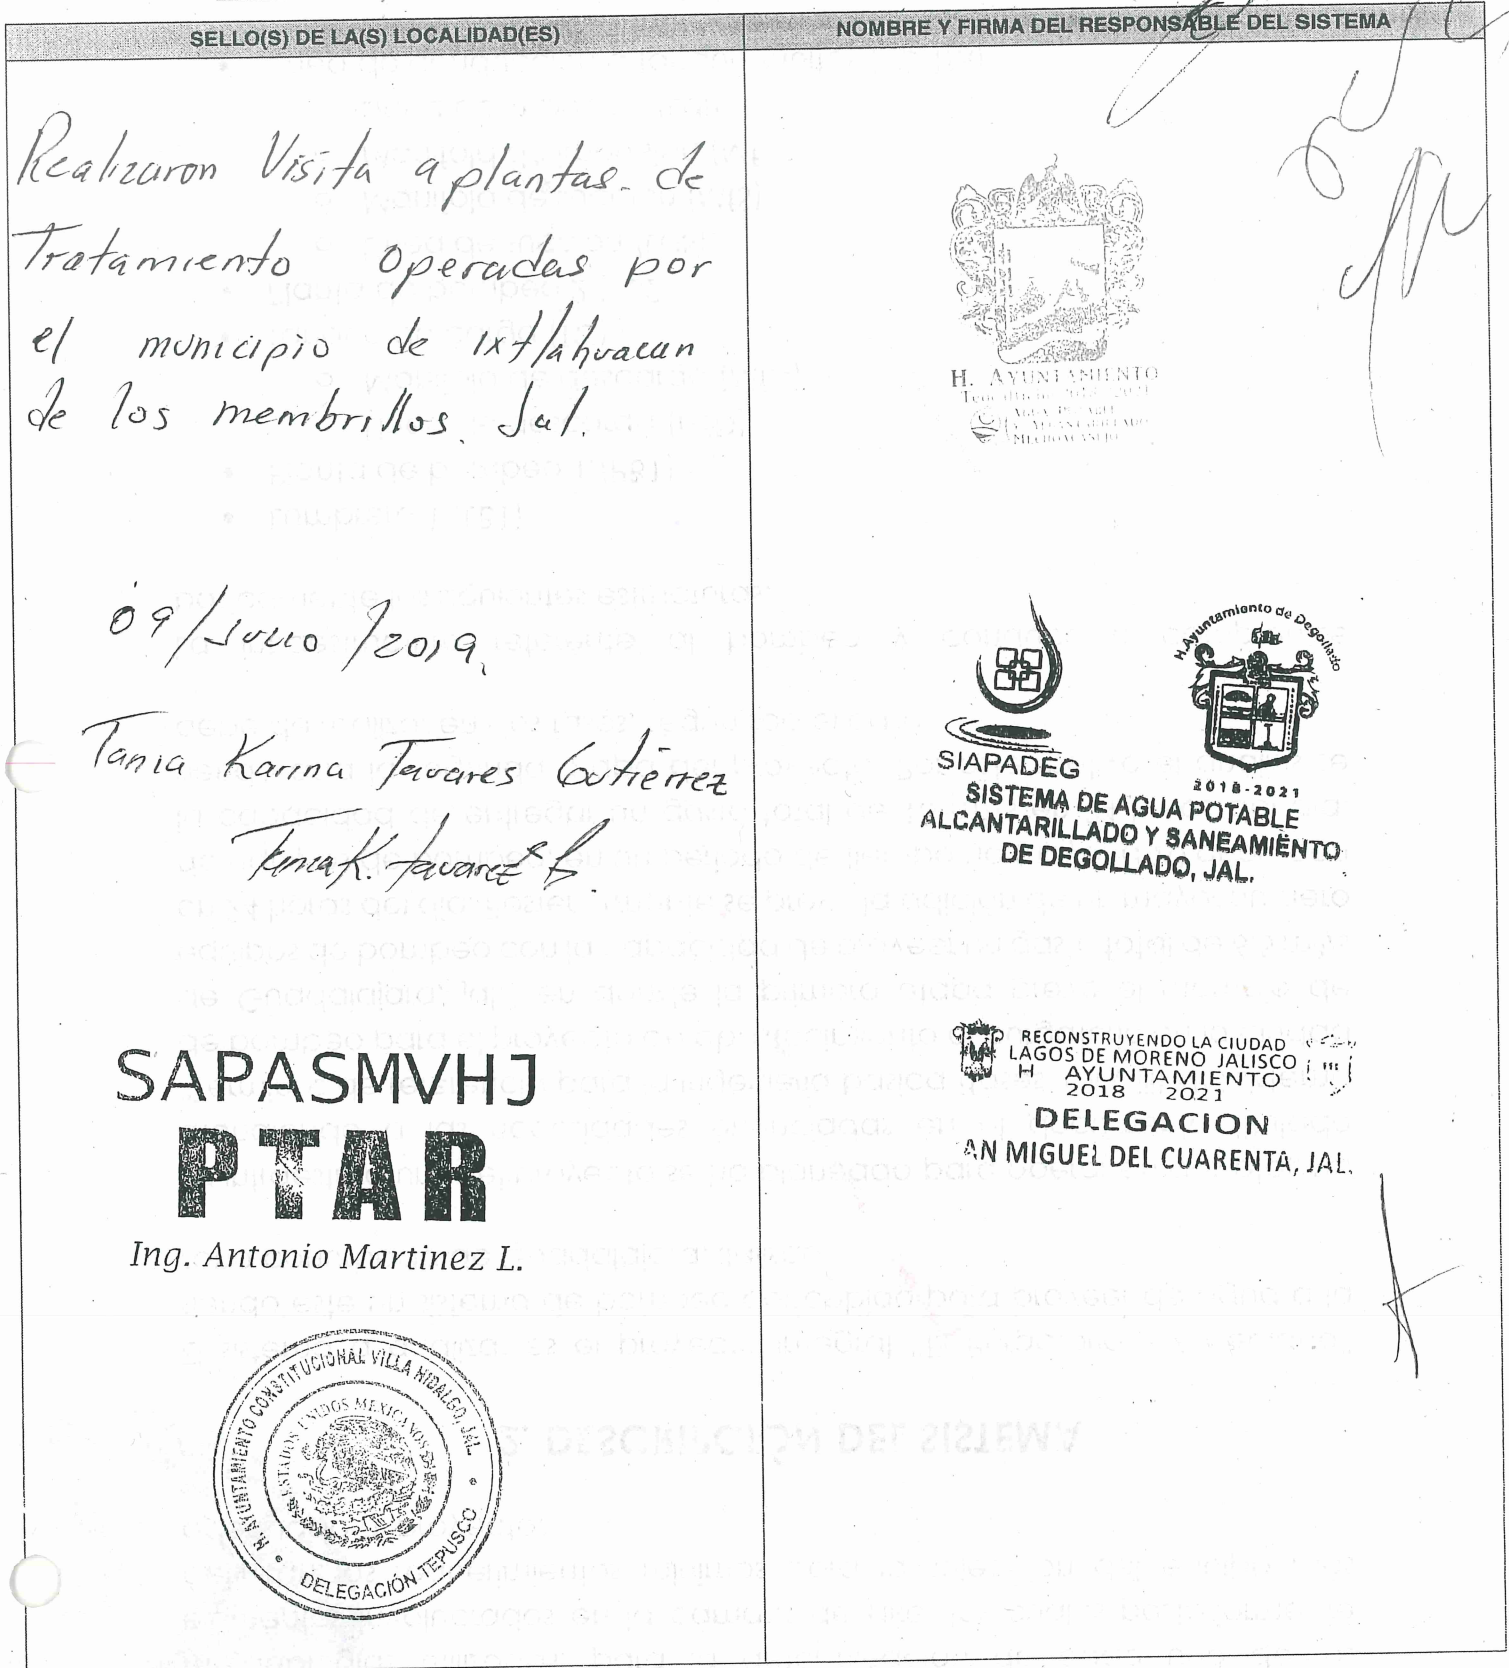 SELLO(S) DE LA(S) LOCALIDAD(ES)
NOMBRE Y FIRMA DEL RESPONSABLE DEL SISTEMA
Realizaron Visita a plantas de
Tratamiento operadas por
el municipio de Ixtlahuacan
de los membrillos. Jal.
09/Julio/2019.
Tania Karina Tavares Gutiérrez
Tania K. Tavares G.
SAPASMVHJ
PTAR
Ing. Antonio Martinez L.
H. AYUNTAMIENTO CONSTITUCIONAL VILLA HIDALGO, JAL.
ESTADOS UNIDOS MEXICANOS
DELEGACIÓN TEPUSCO
H. AYUNTAMIENTO
2018 2021
AGUA POTABLE
Y ALCANTARILLADO
MECHOACANEJO
SIAPADEG
H. Ayuntamiento de Degollado
2018-2021
SISTEMA DE AGUA POTABLE
ALCANTARILLADO Y SANEAMIENTO
DE DEGOLLADO, JAL.
RECONSTRUYENDO LA CIUDAD
LAGOS DE MORENO JALISCO
H AYUNTAMIENTO
2018 2021
DELEGACION
AN MIGUEL DEL CUARENTA, JAL.